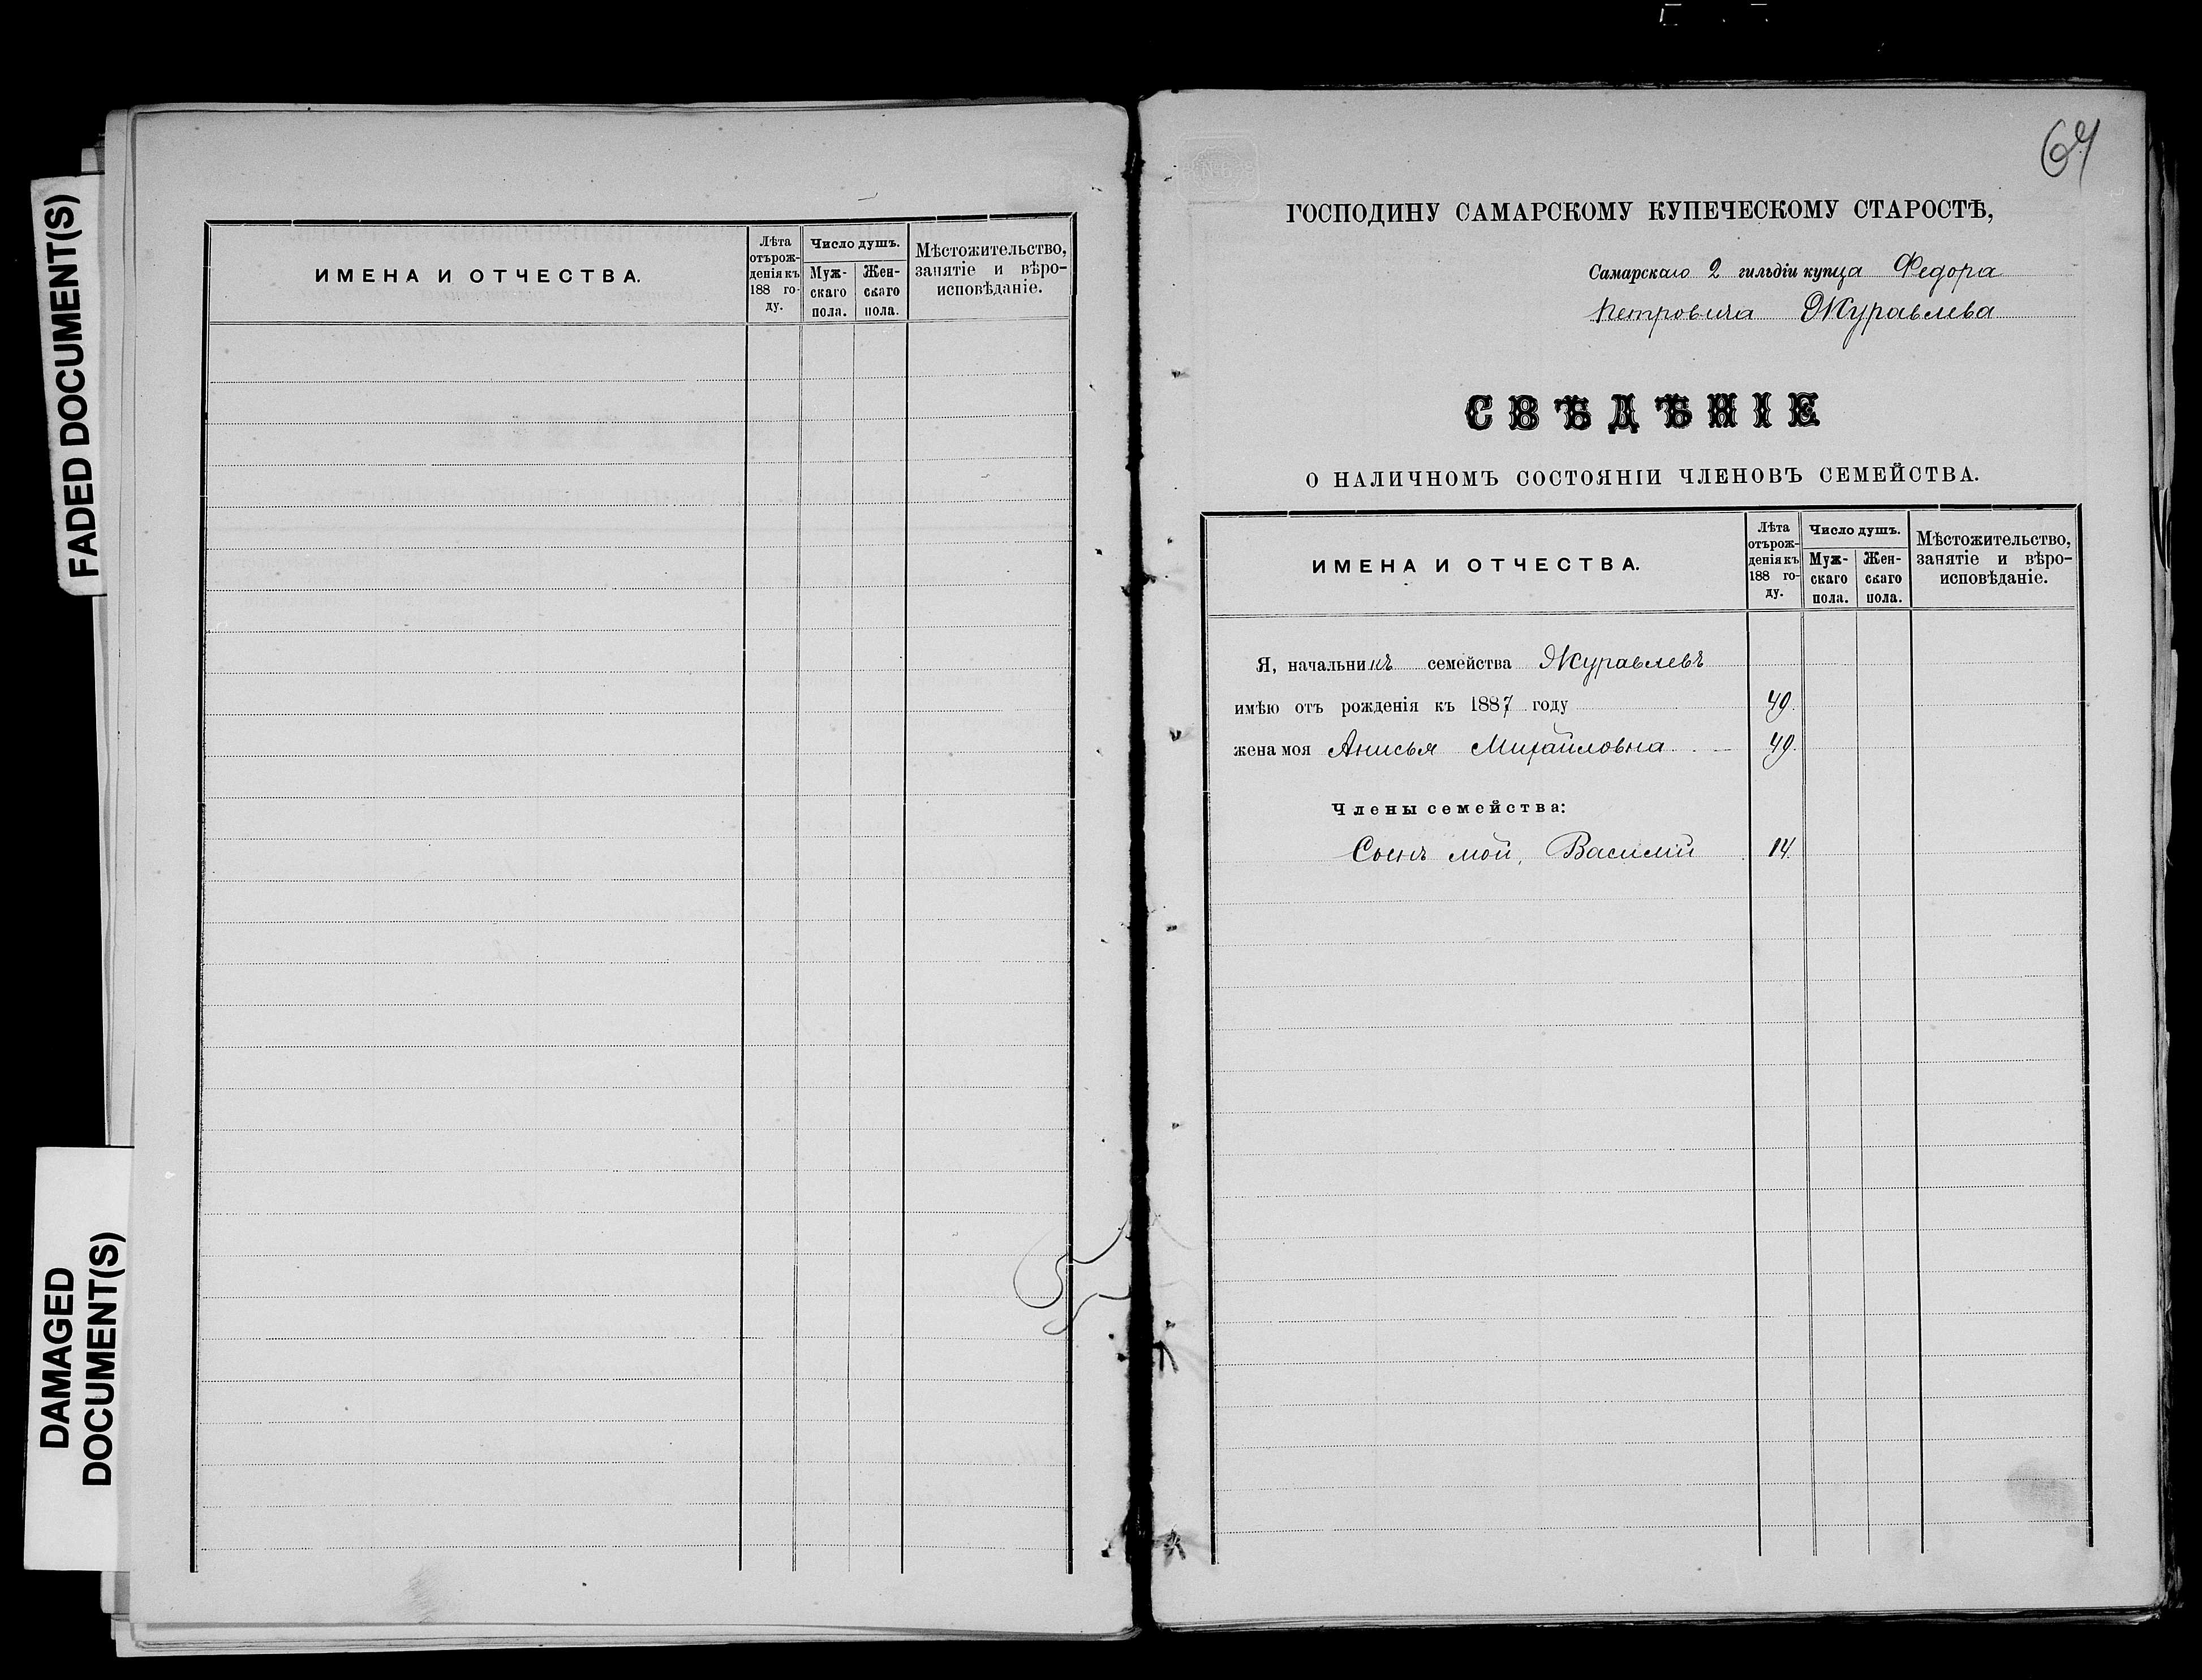 FADED DOCUMENT(S)
DAMAGED
DOCUMENT(S)
ИМЕНА И ОТЧЕСТВА.
Лѣта
отъ рож-
денія къ
188 го-
ду.
Число душъ.
Муж-
скаго
пола.
Жен-
скаго
пола.
Мѣстожительство,
занятіе и вѣро-
исповѣданіе.
ГОСПОДИНУ САМАРСКОМУ КУПЕЧЕСКОМУ СТАРОСТѢ,
Самарскаго 2 гильдіи купца Федора
Петровича Журавлева
СВѢДѢНІЕ
О НАЛИЧНОМЪ СОСТОЯНІИ ЧЛЕНОВЪ СЕМЕЙСТВА.
ИМЕНА И ОТЧЕСТВА.
Лѣта
отъ рож-
денія къ
188 го-
ду.
Число душъ.
Муж-
скаго
пола.
Жен-
скаго
пола.
Мѣстожительство,
занятіе и вѣро-
исповѣданіе.
Я, начальникъ семейства Журавлевъ
имѣю отъ рожденія къ 1887 году 49.
жена моя Анисья Михайловна 49.
Члены семейства:
Сынъ мой, Василій 14.